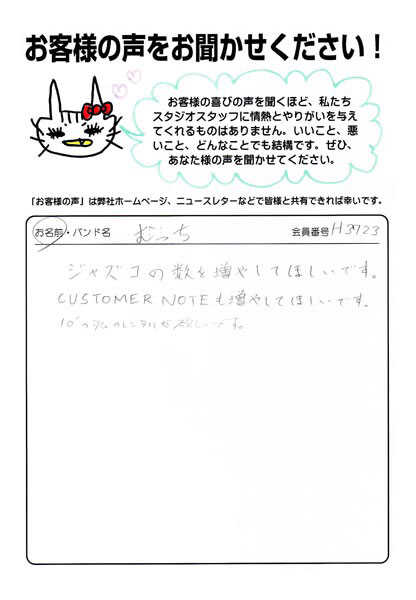 お客様の声をお聞かせください！
お客様の喜びの声を聞くほど、私たち
スタジオスタッフに情熱とやりがいを与え
てくれるものはありません。いいこと、悪
いこと、どんなことでも結構です。ぜひ、
あなた様の声を聞かせてください。
「お客様の声」は弊社ホームページ、ニュースレターなどで皆様と共有できれば幸いです。
お名前・バンド名 むっち 会員番号 H3723
ジャズコの数を増やしてほしいです。
CUSTOMER NOTEも増やしてほしいです。
10"タムのレンタルが欲しいです。